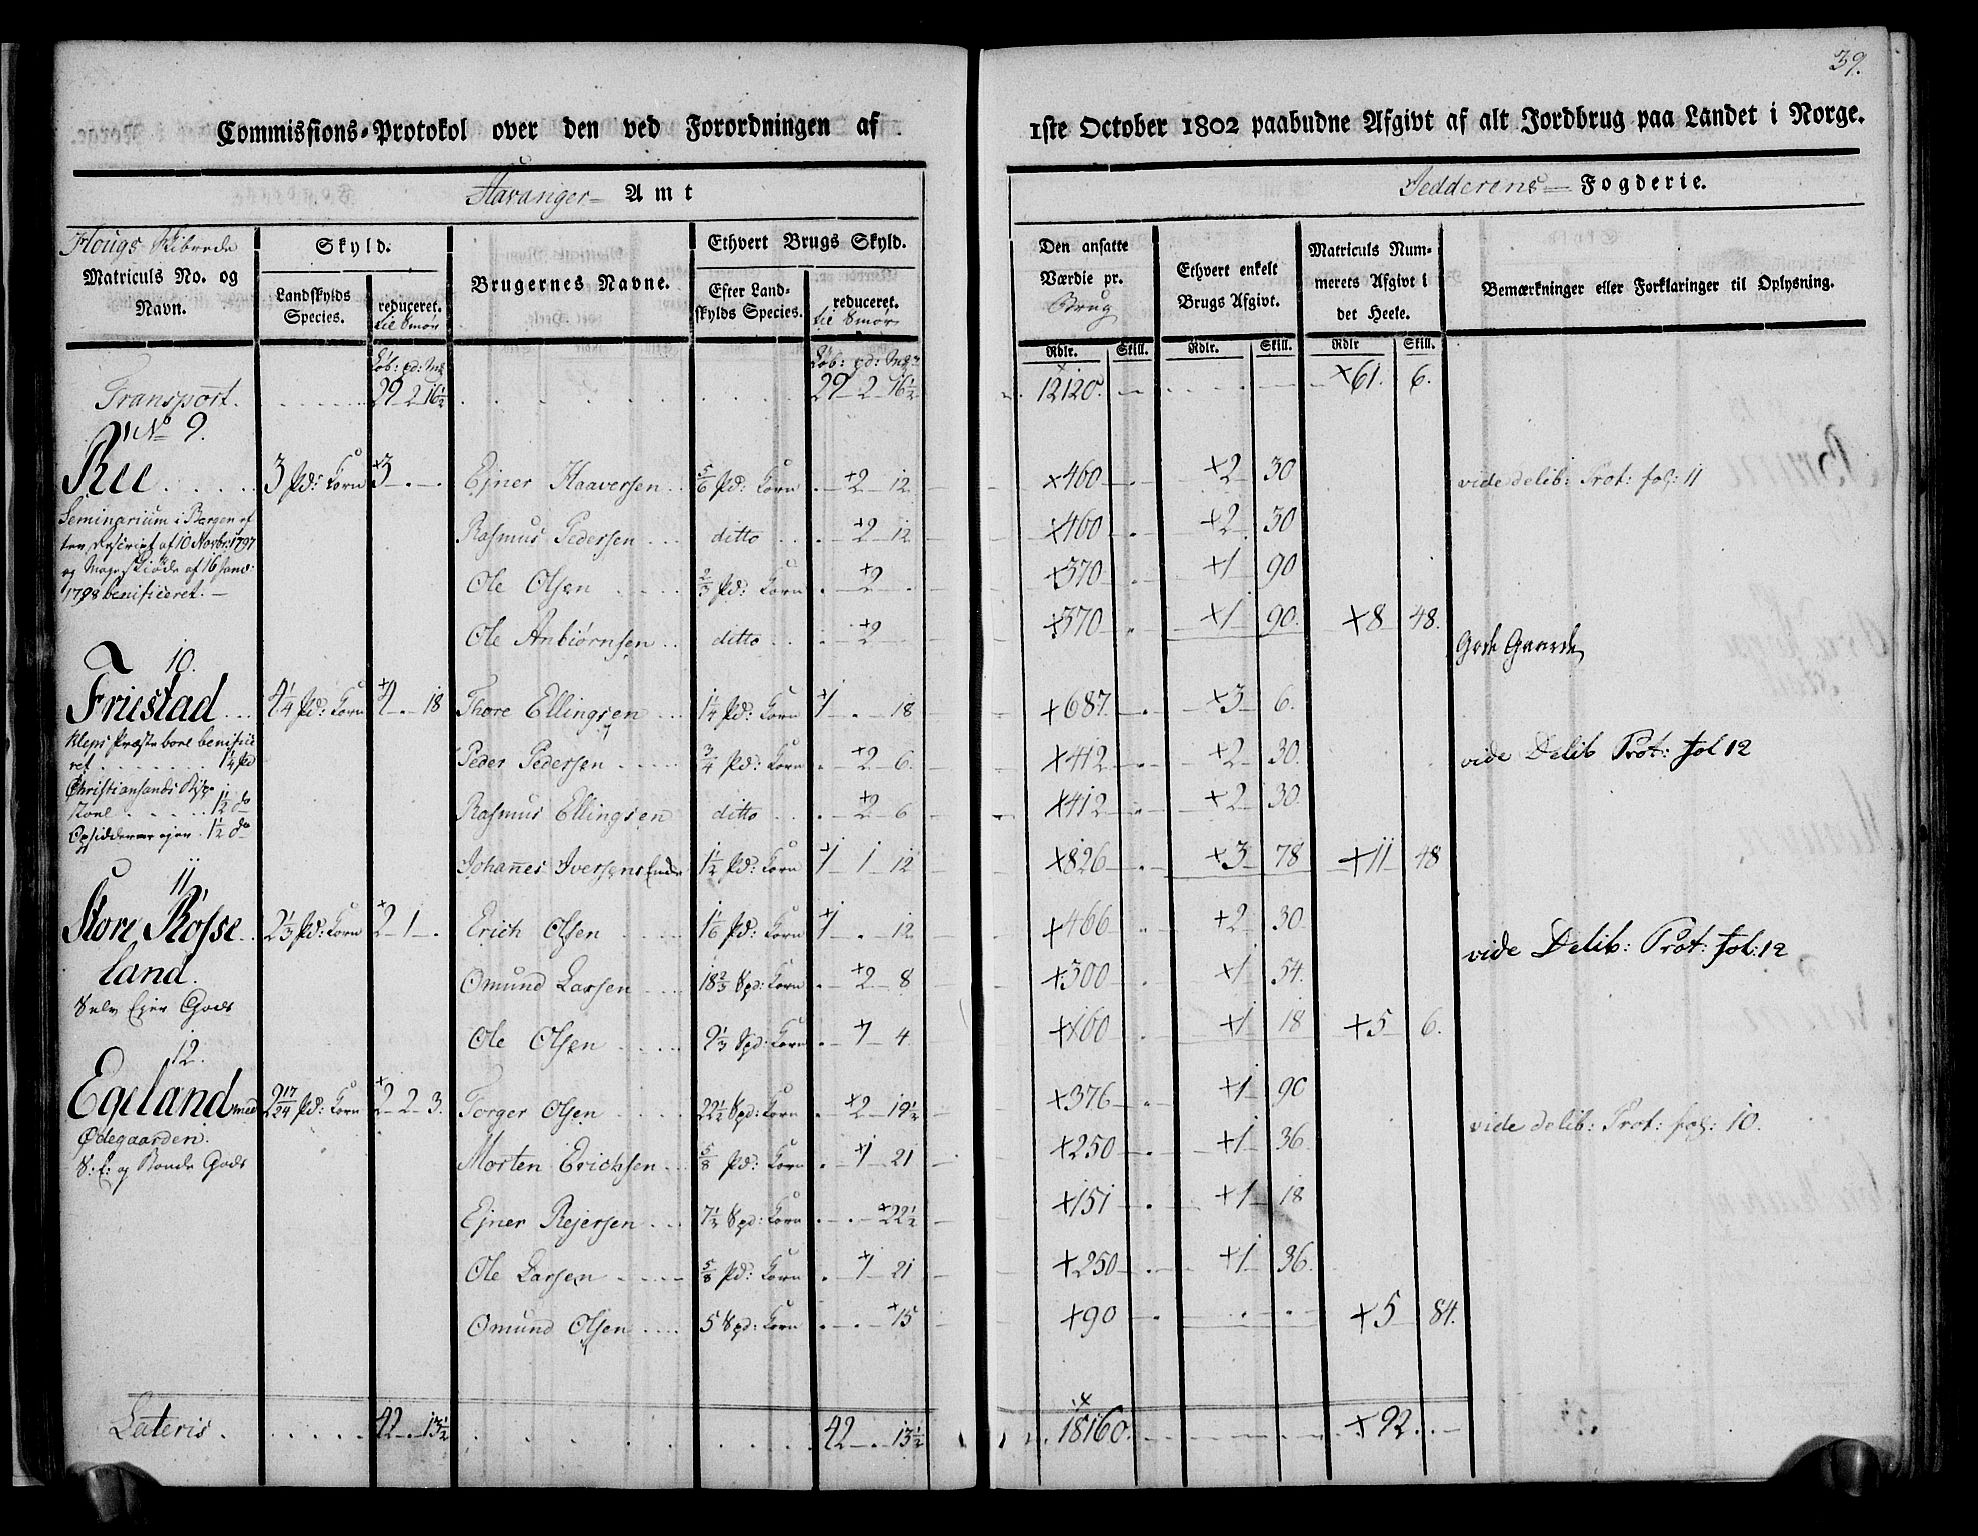 39.
Commissions-Protokol over den ved Forordningen af
1ste October 1802 paabudne Afgivt af alt Jordbrug paa Landet i Norge.
Stavanger Amt
Jedderens Fogderie.
Hougs Skibrede
Matriculs No. og Navn.
Skyld.
Landskylds Species.
reduceret. til Smør
Brugernes Navne.
Ethvert Brugs Skyld.
Efter Landskylds Species.
reduceret. til Smør
Den ansatte Værdie pr. Brug
Ethvert enkelt Brugs Afgivt.
Matriculs Nummerets Afgivt i det Heele.
Bemærkninger eller Forklaringer til Oplysning.
Løb: pd: Mk
Løb: pd: Mk
Rdlr. Skill. Rdlr. Skill. Rdlr Skill.
Transport. 29 2 16½ 29 2 16½ 12120. ×61. 6.
No 9.
Ree 3 Pd: Korn +3 Ejner Haaversen 5/6 Pd: Korn +2 12 ×460 +2 30 vide delib: Prot: fol: 11
Seminarium i Bergen ef
ter Rescript af 10 Novbr: 1797
og Mageskiøde af 16 Janv:
1798 benificeret.
Rasmus Pedersen ditto +2 12 ×460 +2 30
Ole Olsen 2/3 Pd: Korn +2 ×370 +1 90
Ole Anbiørnsen ditto +2 ×370 +1 90. +8 48.
Gode Gaarde
10.
Friestad 4¼ Pd: Korn +4 18 Thore Ellingsen 1¼ Pd: Korn +1 18 +687. +3 6.
Kleps Præstebord benifice
ret 1¼ Pd
Christiansands Bisp
stoel 1½ do
Opsidderne ejer 1½ do
Peder Pedersen ¾ Pd: Korn +2 6. ×412 +2 30. vide Delib Prot: fol 12
Rasmus Ellingsen ditto +2 6 ×412 +2 30.
Johannes Iversens Enke 1½ Pd: Korn +1 1 12 ×826 +3 78 +11 48
11
Store Røsse
land.
Selv Ejer Gods
2⅓ Pd: Korn +2 1 Erich Olsen 1 1/6 Pd: Korn +1 12 ×466 +2 30. vide Delib: Prot: fol: 12
Omund Larsen 18⅔ Spd: Korn +2 8 +300 ×1 54.
Ole Olsen 9⅓ Spd: Korn +1 4 +160 +1 18 +5 6.
12.
Egeland med
Ødegaarden.
S: E: og Bonde Gods
2 17/24 Pd: Korn +2 2 3. Torger Olsen 22½ Spd: Korn +2 19½ ×376 +1 90 vide delib: Prot: fol: 10.
Morten Erichsen 5/8 Pd: Korn +1 21 +250 +1 36.
Ejner Rejersen 7½ Spd: Korn +22½ +151 +1 18
Ole Larsen 5/8 Pd: Korn +1 21 +250 +1 36.
Omund Olsen 5 Spd: Korn +15 +90 +5 84.
Lateris 42 13½ 42 13½ 18160. +92.